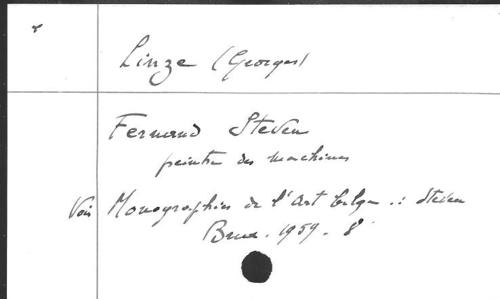 Linze (Georges)
Fernand Steven
peintre des machines
Voir Monographies de l'Art belge .: Steven
Brux. 1959. 8°